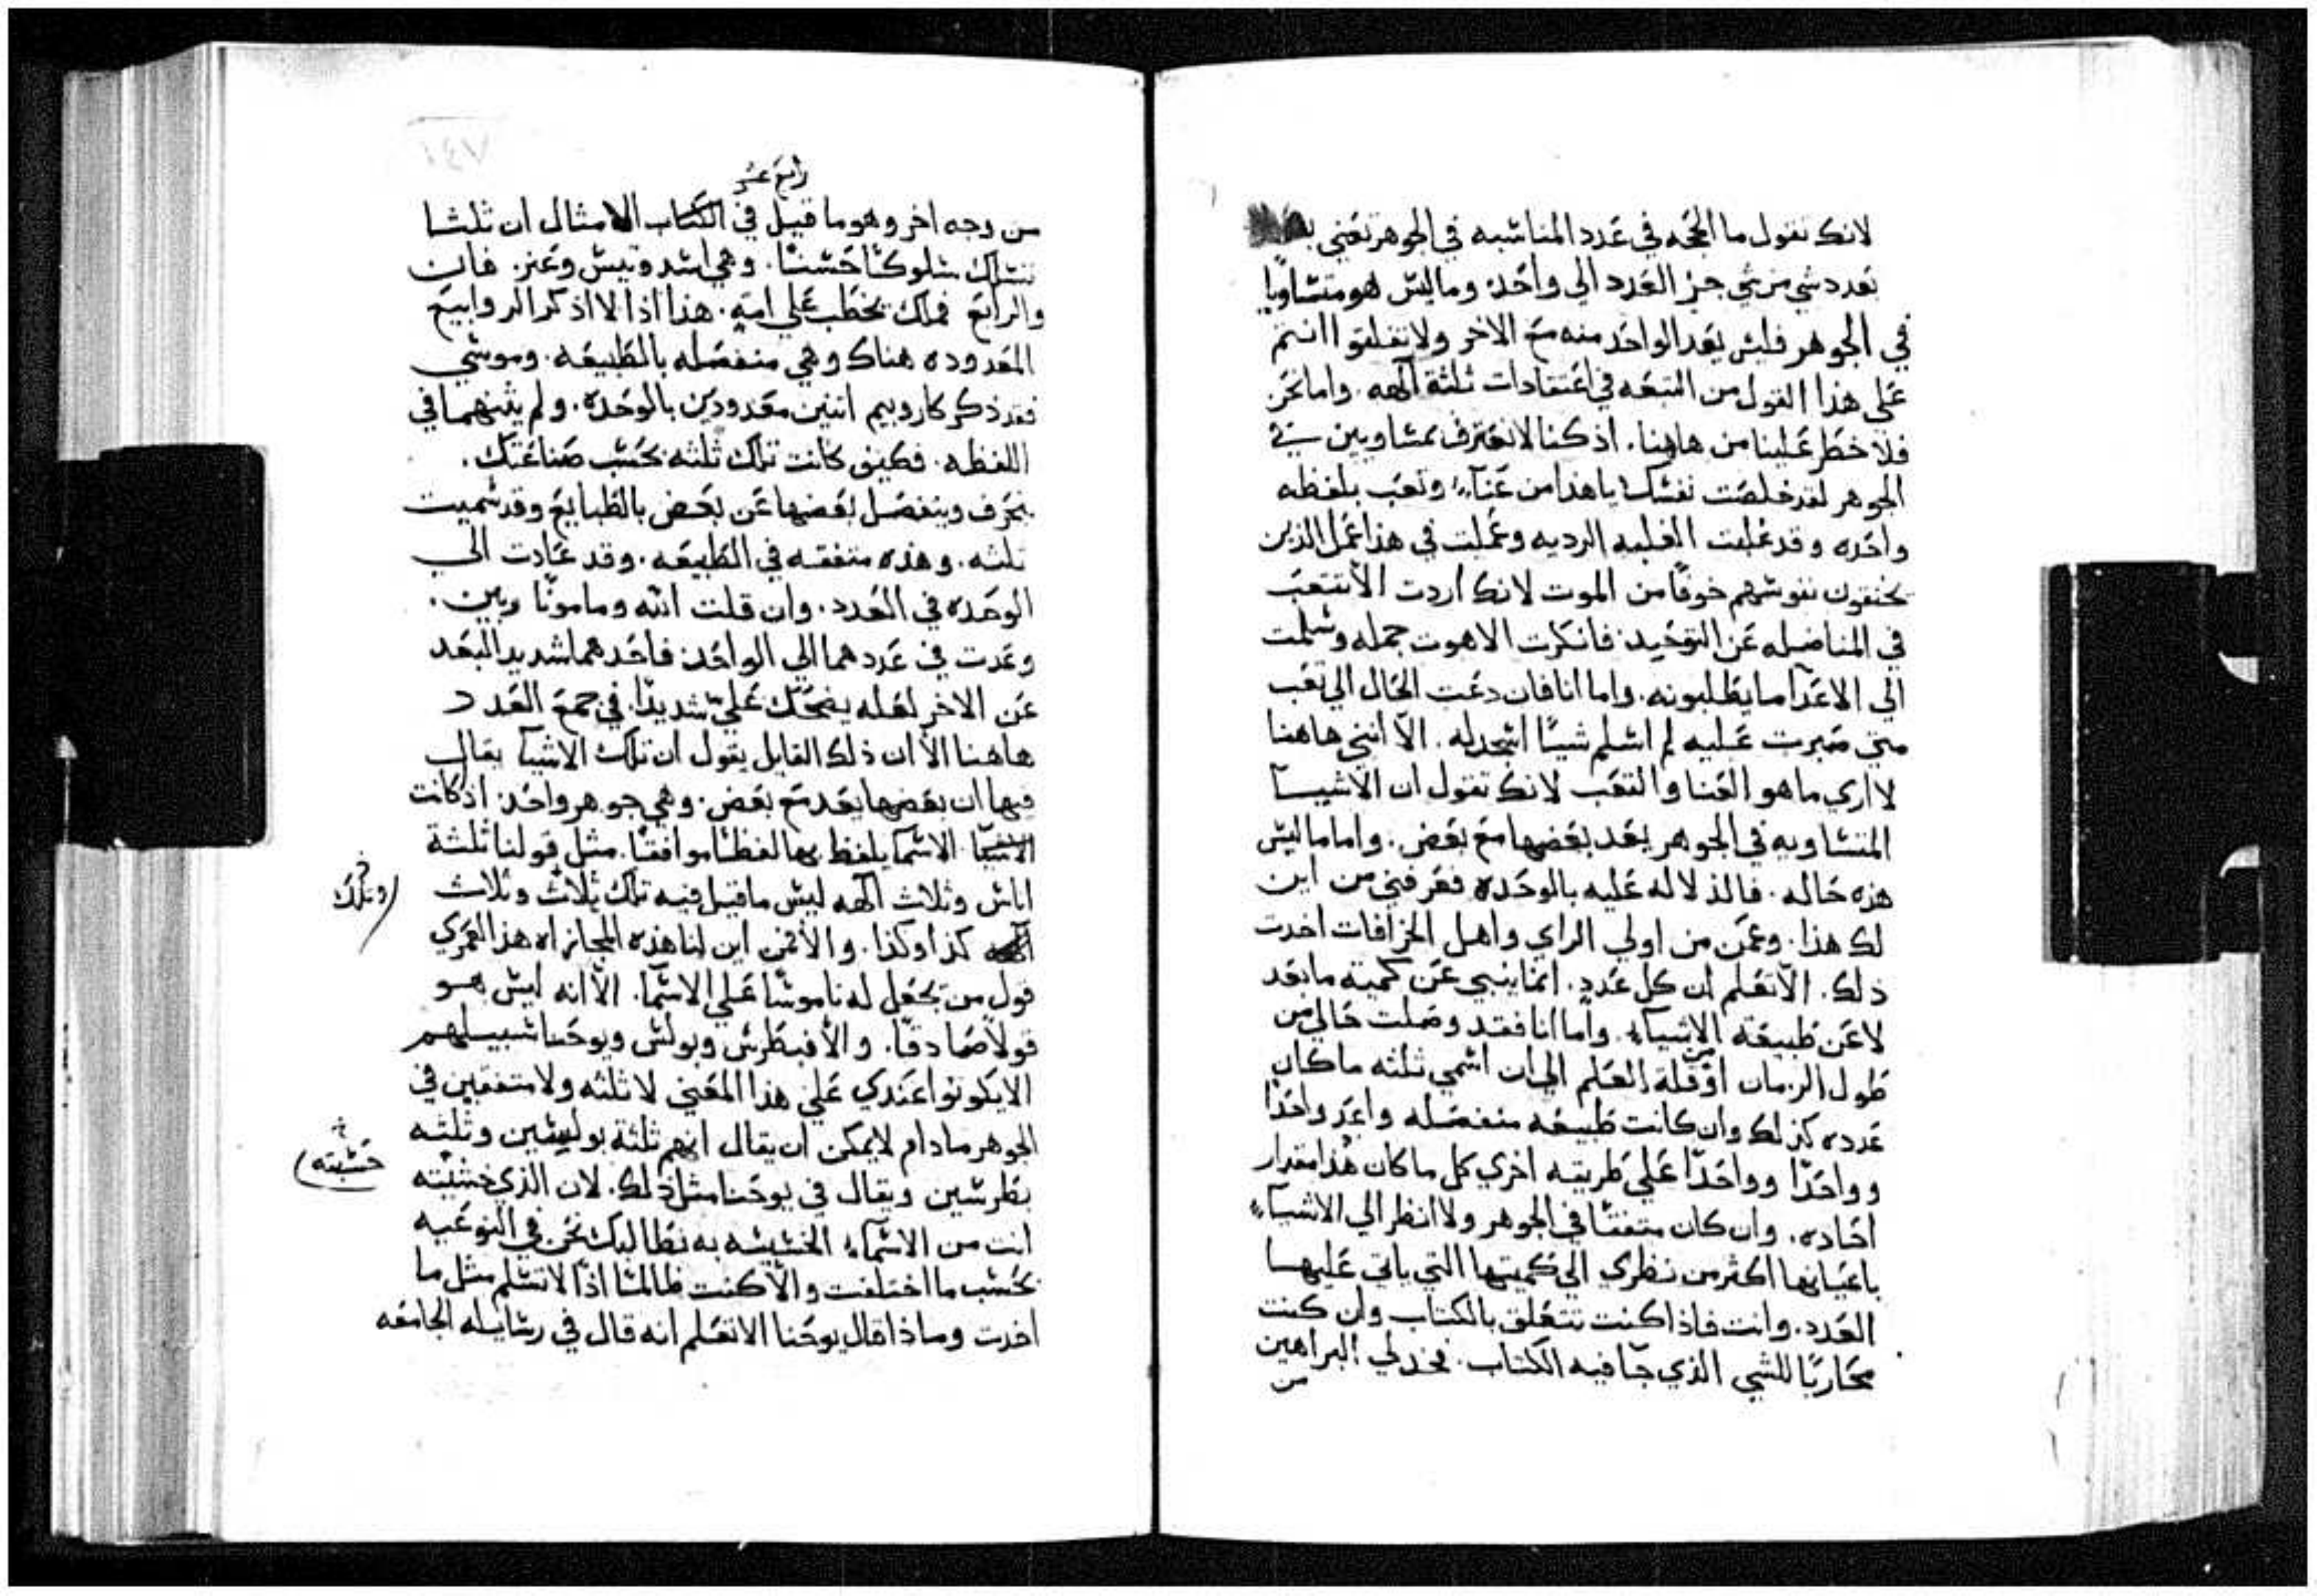 لانك تقول ما الحجه في عدد المناسبه في الجوهر تعني
تعدد شي من شي جز العدد الي واحد وما ليس هو متساويا
في الجوهر فليس يعد الواحد منه مع الاخر ولا تفلتوا انتم
علي هذا القول من التبعه في اعتقادات ثلثة آلهه. واما نحن
فلا خطر علينا من هاهنا. اذ كنا لا نعترف بمتساويين في
الجوهر لقد خلصت نفسك ياهذا من عنآء وتعب بلفظه
واحده وقد غلبت الغلبه الرديه وعملت في هذا عمل الذين
يخنقون نفوسهم خوفًا من الموت لانك اردت الا تتعب
في المناضله عن التوحيد فانكرت الاهوت جمله وسلمت
الي الاعدآ ما يطلبونه. واما انا فان دعت الحال الي تعب
متي صبرت عليه لم اسلم شيئًا اسجد له. الا انني هاهنا
لا اري ما هو العنا والتعب لانك تقول ان الاشيآ
المتساويه في الجوهر يعد بعضها مع بعض. واما ما ليس
هذه حاله. فالدلاله عليه بالوحده فعرفني من اين
لك هذا. وعمن من اولي الراي واهل الخزافات اخدت
ذلك. الا تعلم ان كل عدد. انما ينبي عن كمية ما يعد
لا عن طبيعة الاشيآء. واما انا فقد وصلت حالي من
طول الزمان او من قلة العلم الي ان اسمي ثلثه ما كان
عدده كذلك وان كانت طبيعه منفصله واعد واحدًا
وواحدًا وواحدًا علي طريقه اخري كل ما كان هذا مقدار
احاده. وان كان متفقا في الجوهر ولا انظر الي الاشيآء
باعيانها اكثر من نظري الي كميتها التي ياتي عليها
العدد. وانت فاذا كنت تتعلق بالكتاب وان كنت
محاربًا للشي الذي جآ فيه الكتاب. فخد لي البراهين
من
رابع عشر
من وجه اخر وهو ما قيل في الكتاب الامثال ان ثلثا
تسلك سلوكًا حسنًا. وهي اسد وتيس وعنز. فان
والرابع فملك يخطب علي امته. هذا اذا لا اذكر الروابيع
المعدوده هناك وهي منفصله بالطبيعه. وموسي
فقد ذكر كاروبيم اثنين معدودين بالوحده. ولم يثنهما في
اللفظه. فكيف كانت تلك ثلثه بحسب صناعتك.
بحرف وينفصل بعضها عن بعض بالطبايع وقد سميت
ثلثه. وهذه متفقه في الطبيعه. وقد عادت الي
الوحده في العدد. وان قلت الله ومامونا ربين.
وعدت في عددهما الي الواحد فاحدهما شديد البعد
عن الاخر لعله يضحك علي شديدًا في جمع العدد
هاهنا الا ان ذلك القايل يقول ان تلك الاشيآ يقال
فيها ان بعضها يعد مع بعض. وهي جوهر واحد. اذ كانت
الاسمآ يلفظ بها لفظًا موافقًا. مثل قولنا ثلثة
اناس وثلاث آلهه ليس ما قيل فيه تلك ثلاث وثلاث
وتلك
كذا وكذا. والا فمن اين لنا هذه المجازاه هذا لعمري
قول من يجعل له ناموسًا علي الاسمآ. الا انه ليس هو
قولاً صادقًا. والا فبطرس وبولس ويوحنا سبيلهم
الا يكونوا عندي علي هذا المعني لا ثلثه ولا متفقين في
الجوهر مادام لا يمكن ان يقال انهم ثلثة بولسيين وثلثه
بطرسين ويقال في يوحنا مثل ذلك. لان الذي خشيته
حسبته
انت من الاسمآء الخسيسه به نطالبك نحن في النوعيه
بحسب ما اختلقت والا كنت ظالمًا اذا لا تسلم مثل ما
اخدت وماذا قال يوحنا الا تعلم انه قال في رسايله الجامعه